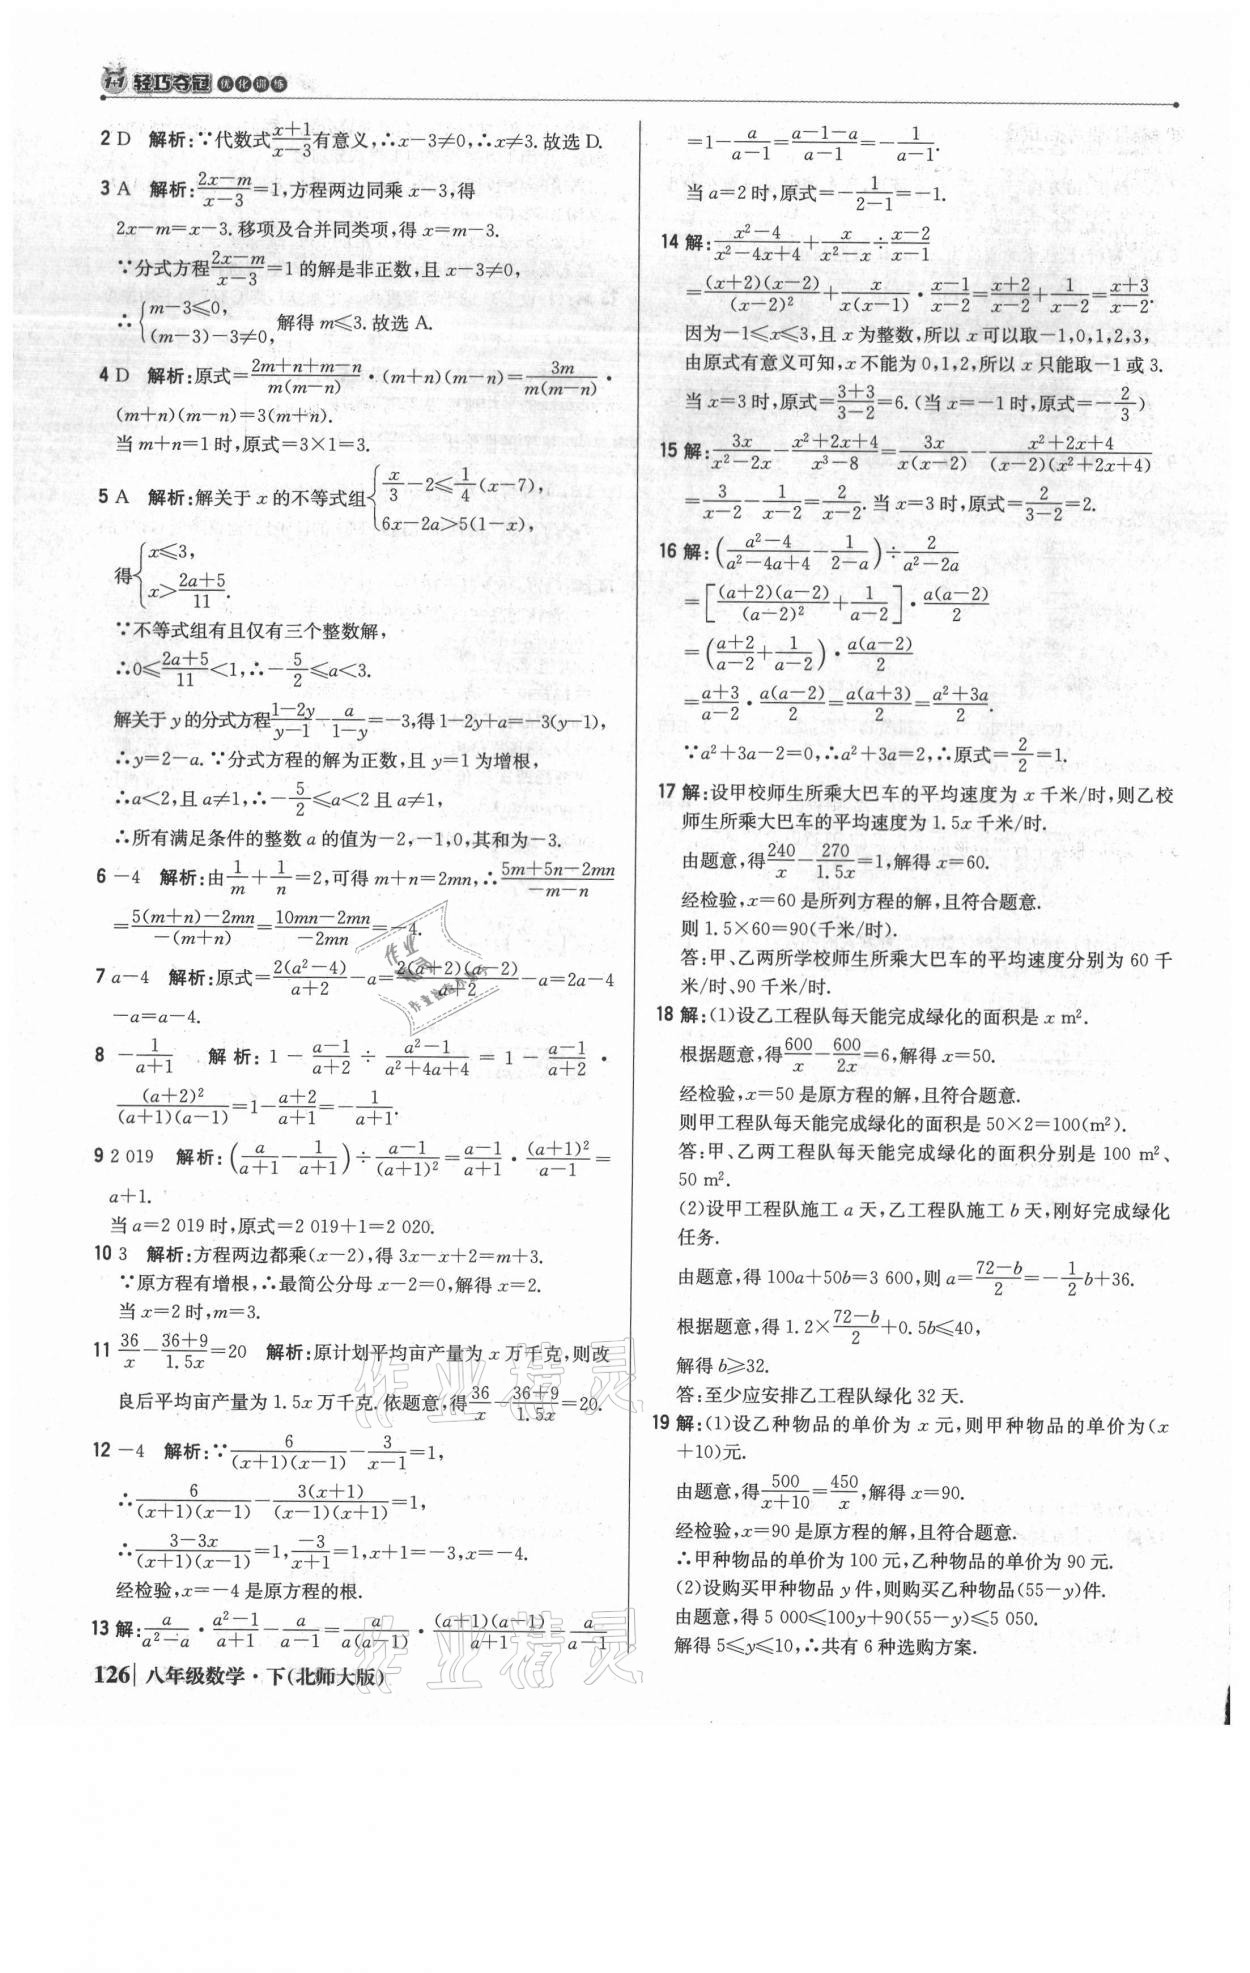 1+1 轻巧夺冠 优化训练
2 D 解析:∵代数式(x+1)/(x-3)有意义,∴x-3≠0,∴x≠3.故选 D.
3 A 解析:(2x-m)/(x-3)=1,方程两边同乘 x-3,得
2x-m=x-3.移项及合并同类项,得 x=m-3.
∵分式方程(2x-m)/(x-3)=1 的解是非正数,且 x-3≠0,
∴{m-3≤0, (m-3)-3≠0, 解得 m≤3.故选 A.
4 D 解析:原式=(2m+n+m-n)/(m(m-n))·(m+n)(m-n)=3m/(m(m-n))·
(m+n)(m-n)=3(m+n).
当 m+n=1 时,原式=3×1=3.
5 A 解析:解关于 x 的不等式组{x/3-2≤1/4(x-7), 6x-2a>5(1-x),
得{x≤3, x>(2a+5)/11.
∵不等式组有且仅有三个整数解,
∴0≤(2a+5)/11<1,∴-5/2≤a<3.
解关于 y 的分式方程(1-2y)/(y-1)-a/(1-y)=-3,得 1-2y+a=-3(y-1),
∴y=2-a.∵分式方程的解为正数,且 y=1 为增根,
∴a<2,且 a≠1,∴-5/2≤a<2 且 a≠1,
∴所有满足条件的整数 a 的值为-2,-1,0,其和为-3.
6 -4 解析:由1/m+1/n=2,可得 m+n=2mn,∴(5m+5n-2mn)/(-m-n)
=(5(m+n)-2mn)/(-(m+n))=(10mn-2mn)/(-2mn)=-4.
7 a-4 解析:原式=2(a²-4)/(a+2)-a=2(a+2)(a-2)/(a+2)-a=2a-4
-a=a-4.
8 -1/(a+1) 解析:1-(a-1)/(a+2)÷(a²-1)/(a²+4a+4)=1-(a-1)/(a+2)·
(a+2)²/((a+1)(a-1))=1-(a+2)/(a+1)=-1/(a+1).
9 2 019 解析:(a/(a+1)-1/(a+1))÷(a-1)/(a+1)²=(a-1)/(a+1)·(a+1)²/(a-1)=
a+1.
当 a=2 019 时,原式=2 019+1=2 020.
10 3 解析:方程两边都乘(x-2),得 3x-x+2=m+3.
∵原方程有增根,∴最简公分母 x-2=0,解得 x=2.
当 x=2 时,m=3.
11 36/x-(36+9)/1.5x=20 解析:原计划平均亩产量为 x 万千克,则改
良后平均亩产量为 1.5x 万千克.依题意,得36/x-(36+9)/1.5x=20.
12 -4 解析:∵6/((x+1)(x-1))-3/(x-1)=1,
∴6/((x+1)(x-1))-3(x+1)/((x-1)(x+1))=1,
∴(3-3x)/((x+1)(x-1))=1,-3/(x+1)=1,x+1=-3,x=-4.
经检验,x=-4 是原方程的根.
13 解:a/(a²-a)·(a²-1)/(a+1)-a/(a-1)=a/(a(a-1))·(a+1)(a-1)/(a+1)-a/(a-1)
126 八年级数学·下(北师大版)
=1-a/(a-1)=(a-1-a)/(a-1)=-1/(a-1).
当 a=2 时,原式=-1/(2-1)=-1.
14 解:(x²-4)/(x²-4x+4)+x/(x²-x)÷(x-2)/(x-1)
=(x+2)(x-2)/(x-2)²+x/(x(x-1))·(x-1)/(x-2)=(x+2)/(x-2)+1/(x-2)=(x+3)/(x-2).
因为-1≤x≤3,且 x 为整数,所以 x 可以取-1,0,1,2,3,
由原式有意义可知,x 不能为 0,1,2,所以 x 只能取-1 或 3.
当 x=3 时,原式=(3+3)/(3-2)=6.(当 x=-1 时,原式=-2/3)
15 解:3x/(x²-2x)-(x²+2x+4)/(x³-8)=3x/(x(x-2))-(x²+2x+4)/((x-2)(x²+2x+4))
=3/(x-2)-1/(x-2)=2/(x-2).当 x=3 时,原式=2/(3-2)=2.
16 解:((a²-4)/(a²-4a+4)-1/(2-a))÷2/(a²-2a)
=[(a+2)(a-2)/(a-2)²+1/(a-2)]·a(a-2)/2
=((a+2)/(a-2)+1/(a-2))·a(a-2)/2
=(a+3)/(a-2)·a(a-2)/2=a(a+3)/2=(a²+3a)/2.
∵a²+3a-2=0,∴a²+3a=2,∴原式=2/2=1.
17 解:设甲校师生所乘大巴车的平均速度为 x 千米/时,则乙校
师生所乘大巴车的平均速度为 1.5x 千米/时.
由题意,得240/x-270/1.5x=1,解得 x=60.
经检验,x=60 是所列方程的解,且符合题意.
则 1.5×60=90(千米/时).
答:甲、乙两所学校师生所乘大巴车的平均速度分别为 60 千
米/时、90 千米/时.
18 解:(1)设乙工程队每天能完成绿化的面积是 x m².
根据题意,得600/x-600/2x=6,解得 x=50.
经检验,x=50 是原方程的解,且符合题意.
则甲工程队每天能完成绿化的面积是 50×2=100(m²).
答:甲、乙两工程队每天能完成绿化的面积分别是 100 m²、
50 m².
(2)设甲工程队施工 a 天,乙工程队施工 b 天,刚好完成绿化
任务.
由题意,得 100a+50b=3 600,则 a=(72-b)/2=-1/2b+36.
根据题意,得 1.2×(72-b)/2+0.5b≤40,
解得 b≥32.
答:至少应安排乙工程队绿化 32 天.
19 解:(1)设乙种物品的单价为 x 元,则甲种物品的单价为(x
+10)元.
由题意,得500/(x+10)=450/x,解得 x=90.
经检验,x=90 是原方程的解,且符合题意.
∴甲种物品的单价为 100 元,乙种物品的单价为 90 元.
(2)设购买甲种物品 y 件,则购买乙种物品(55-y)件.
由题意,得 5 000≤100y+90(55-y)≤5 050.
解得 5≤y≤10,∴共有 6 种选购方案.
作业精灵
作业精灵